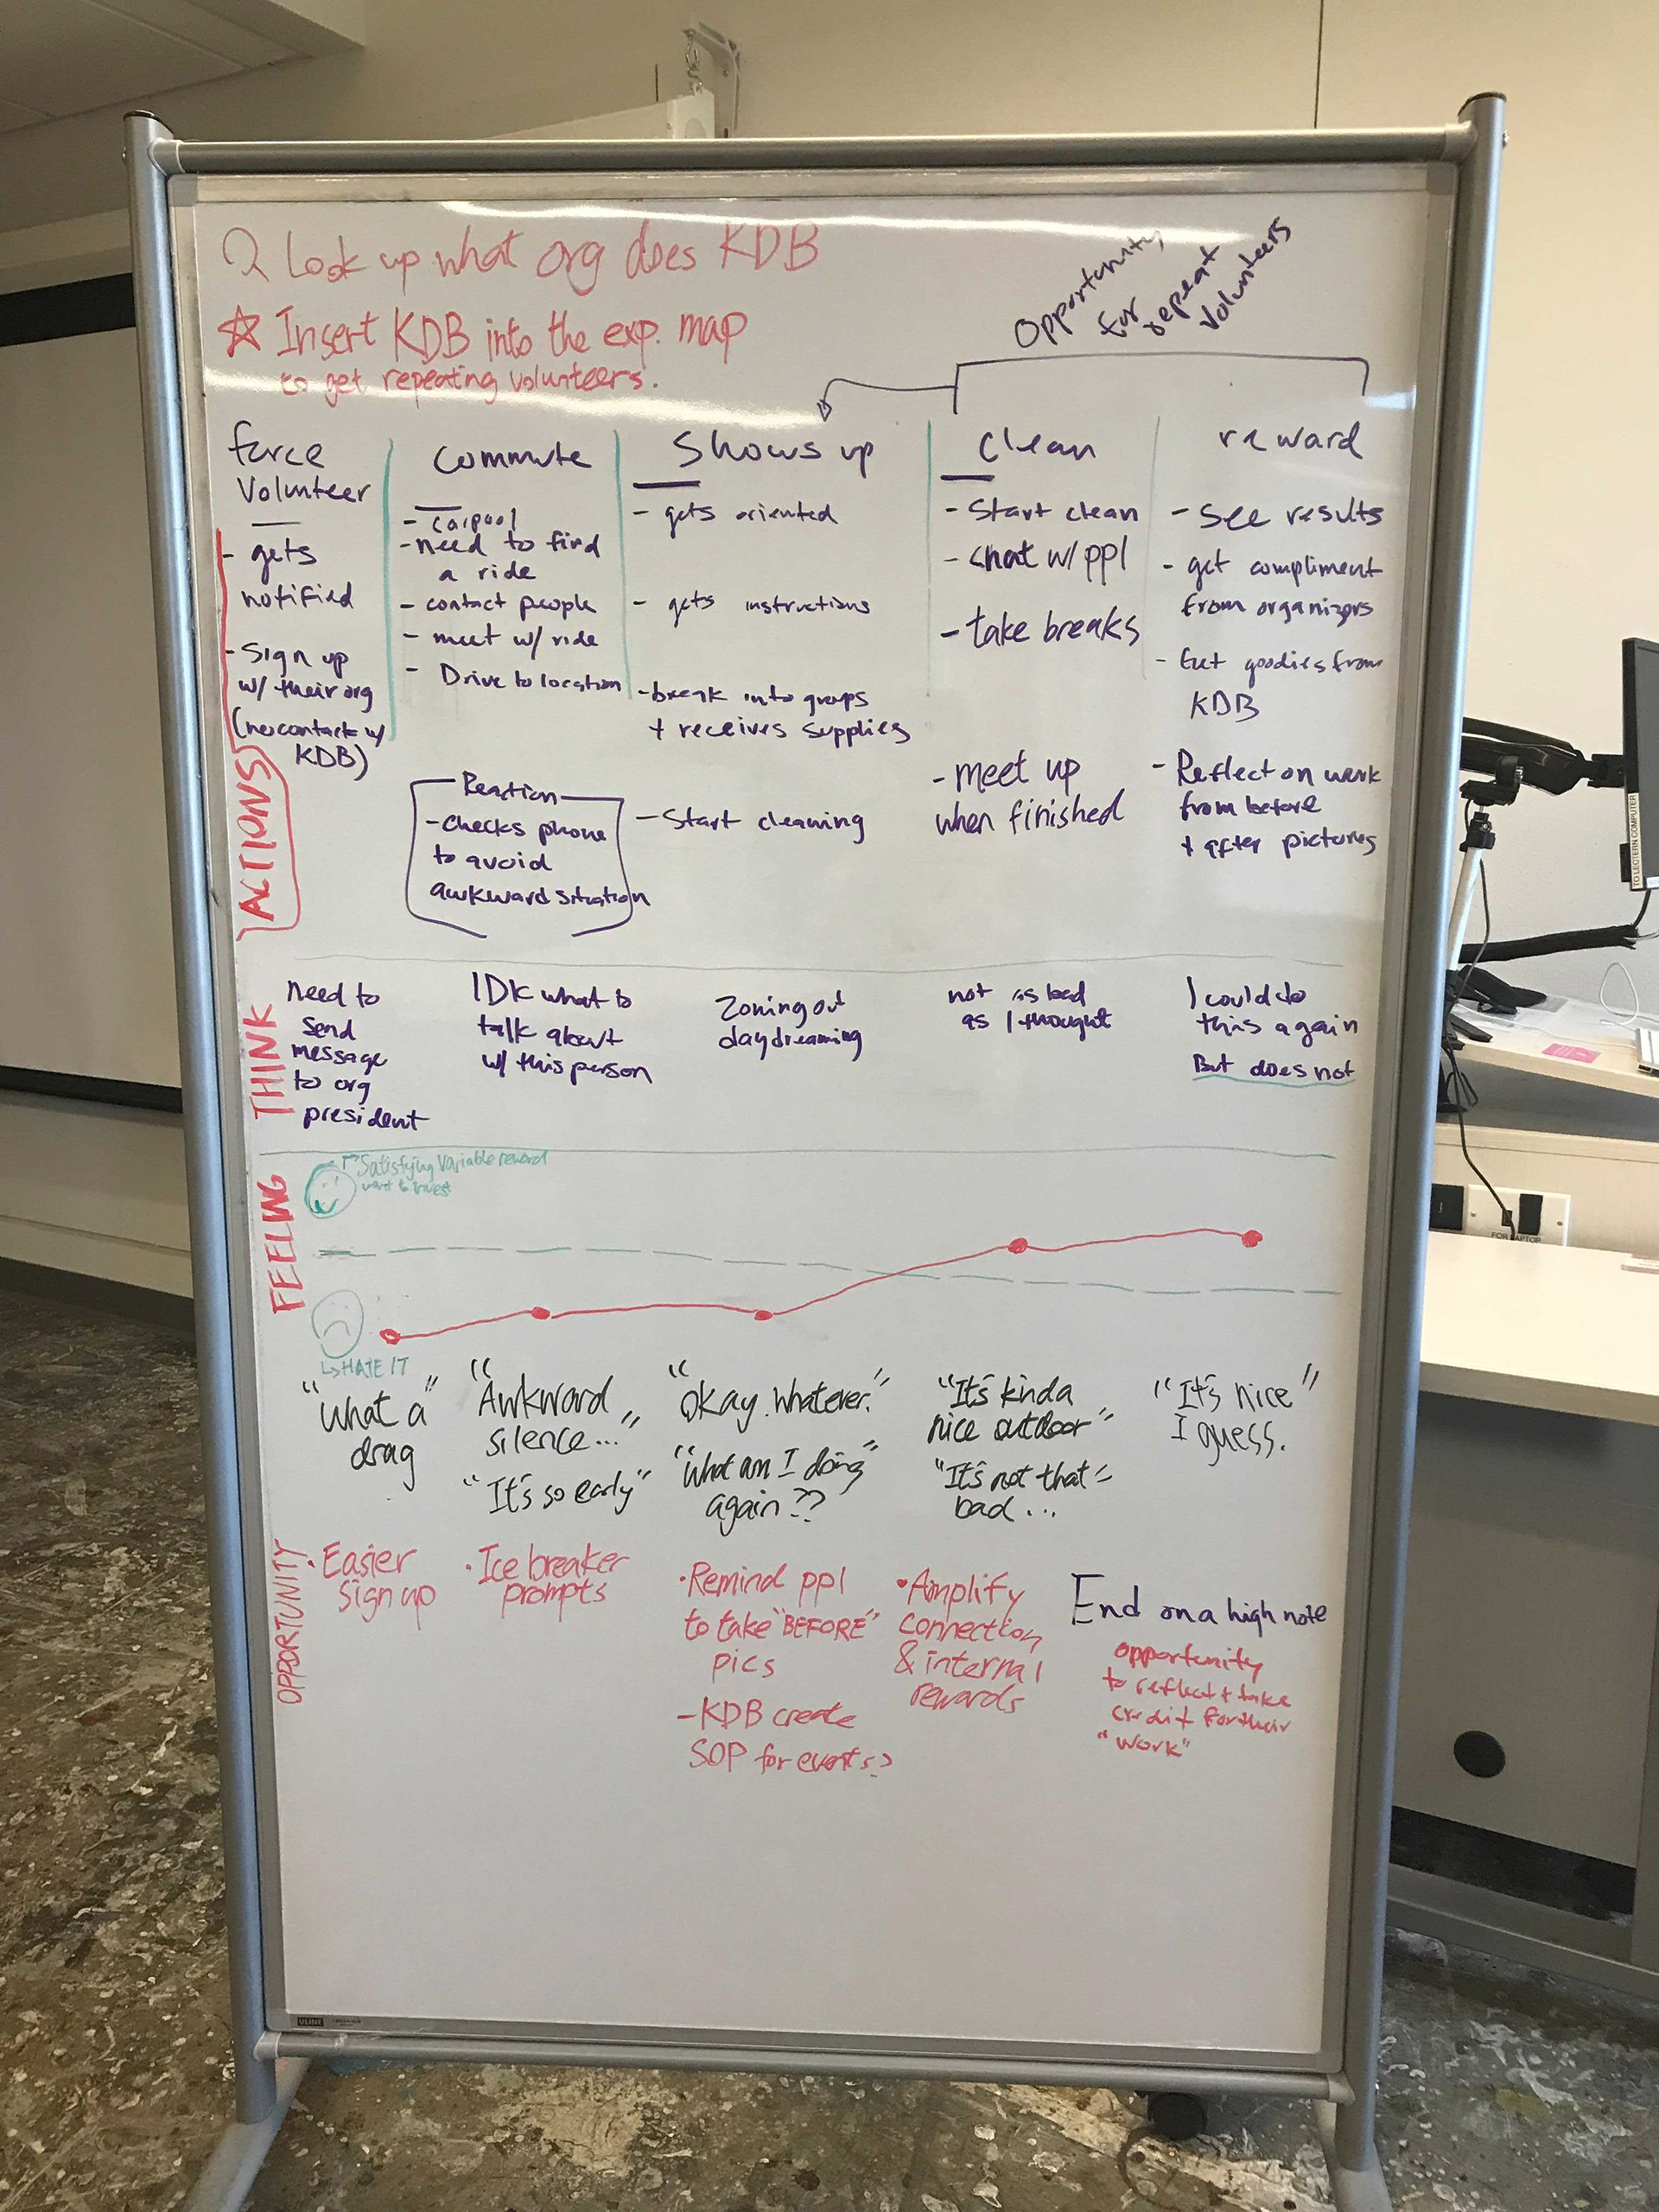 Q Look up what org does KDB
☆ Insert KDB into the exp. map
to get repeating volunteers.
Opportunity
for
repeat
Volunteers
force
Volunteer
- gets
notified
- Sign up
w/ their org
(no contact w/
KDB)
Commute
- Carpool
- need to find
a ride
- contact people
- meet w/ ride
- Drive to location
Reaction
- checks phone
to avoid
awkward situation
Shows up
- gets oriented
- gets instructions
- break into groups
+ receives supplies
- Start cleaning
clean
- Start clean
- chat w/ ppl
- take breaks
- meet up
when finished
reward
- see results
- get compliment
from organizers
- Get goodies from
KDB
- Reflect on work
from before
+ after pictures
ACTIONS
THINK
need to
send
message
to org
president
IDK what to
talk about
w/ this person
Zoning out
daydreaming
not as bad
as I thought
I could do
this again
But does not
FEELING
Satisfying Variable reward
want to invest
↳ HATE IT
"what a"
drag
"Awkward
silence..."
"It's so early"
"Okay. Whatever."
"What am I doing"
again??
"It's kinda
nice outdoor"
"It's not that"
bad...
"It's nice"
I guess.
OPPORTUNITY
· Easier
Sign up
· Ice breaker
prompts
· Remind ppl
to take "BEFORE"
pics
- KDB create
SOP for events?
· Amplify
connection
& internal
rewards
End on a high note
opportunity
to reflect + take
credit for their
"work"
ULINE
TO LECTERN COMPUTER
FOR LAPTOP